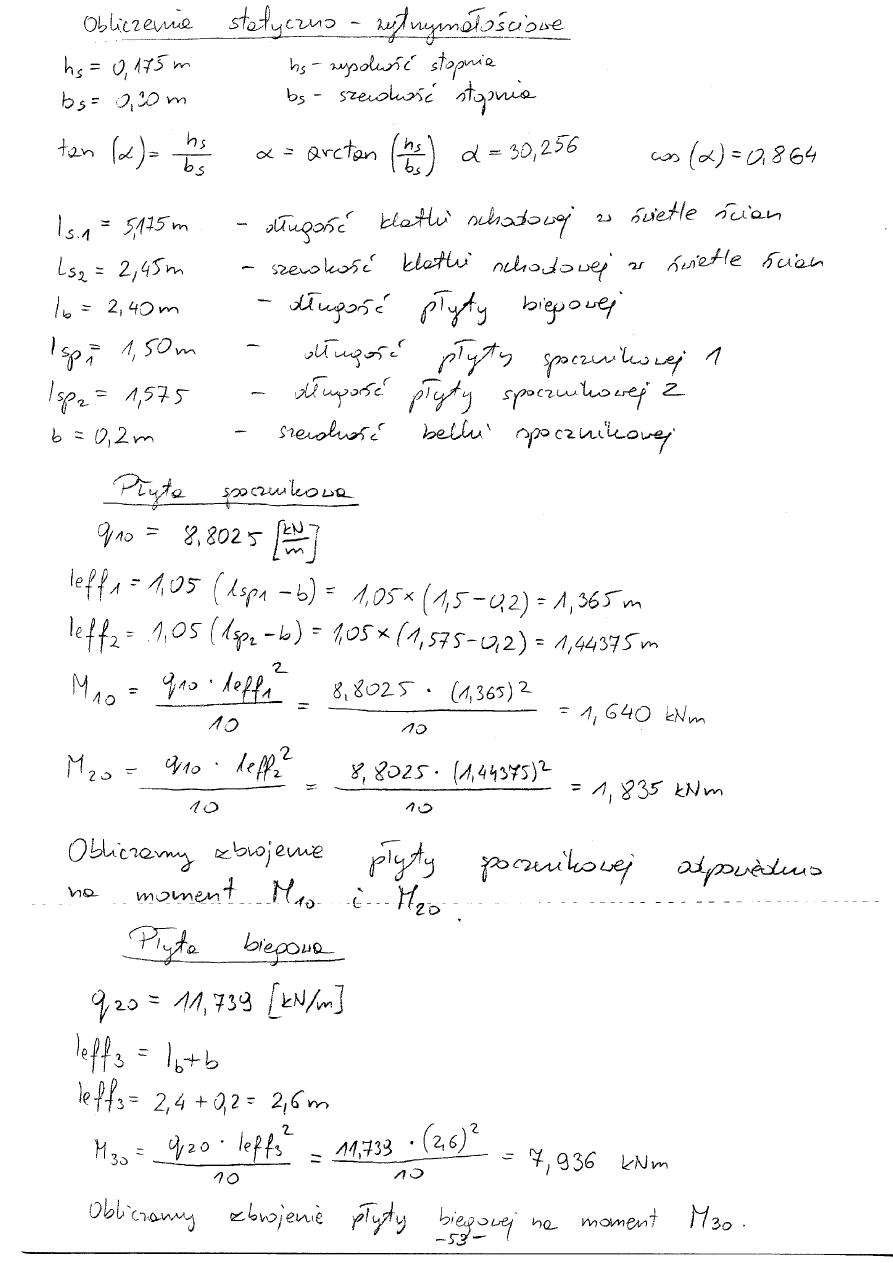 Obliczenie statyczno - wytrzymałościowe
hs = 0,175 m hs - wysokość stopnia
bs = 0,30 m bs - szerokość stopnia
tan (α) = hs/bs α = arctan (hs/bs) α = 30,256 cos (α) = 0,864
ls.1 = 5,175 m - długość klatki schodowej w świetle ścian
Ls2 = 2,45 m - szerokość klatki schodowej w świetle ścian
lb = 2,40 m - długość płyty biegowej
lsp1 = 1,50 m - długość płyty spocznikowej 1
lsp2 = 1,575 - długość płyty spocznikowej 2
b = 0,2 m - szerokość belki spocznikowej
Płyta spocznikowa
q10 = 8,8025 [kN/m]
leff1 = 1,05 (lsp1 - b) = 1,05 × (1,5 - 0,2) = 1,365 m
leff2 = 1,05 (lsp2 - b) = 1,05 × (1,575 - 0,2) = 1,44375 m
M10 = q10 · leff1² / 10 = 8,8025 · (1,365)² / 10 = 1,640 kNm
M20 = q10 · leff2² / 10 = 8,8025 · (1,44375)² / 10 = 1,835 kNm
Obliczamy zbrojenie płyty spocznikowej odpowiednio
na moment M10 i M20.
Płyta biegowa
q20 = 11,739 [kN/m]
leff3 = lb + b
leff3 = 2,4 + 0,2 = 2,6 m
M30 = q20 · leff3² / 10 = 11,739 · (2,6)² / 10 = 7,936 kNm
Obliczamy zbrojenie płyty biegowej na moment M30.
-53-